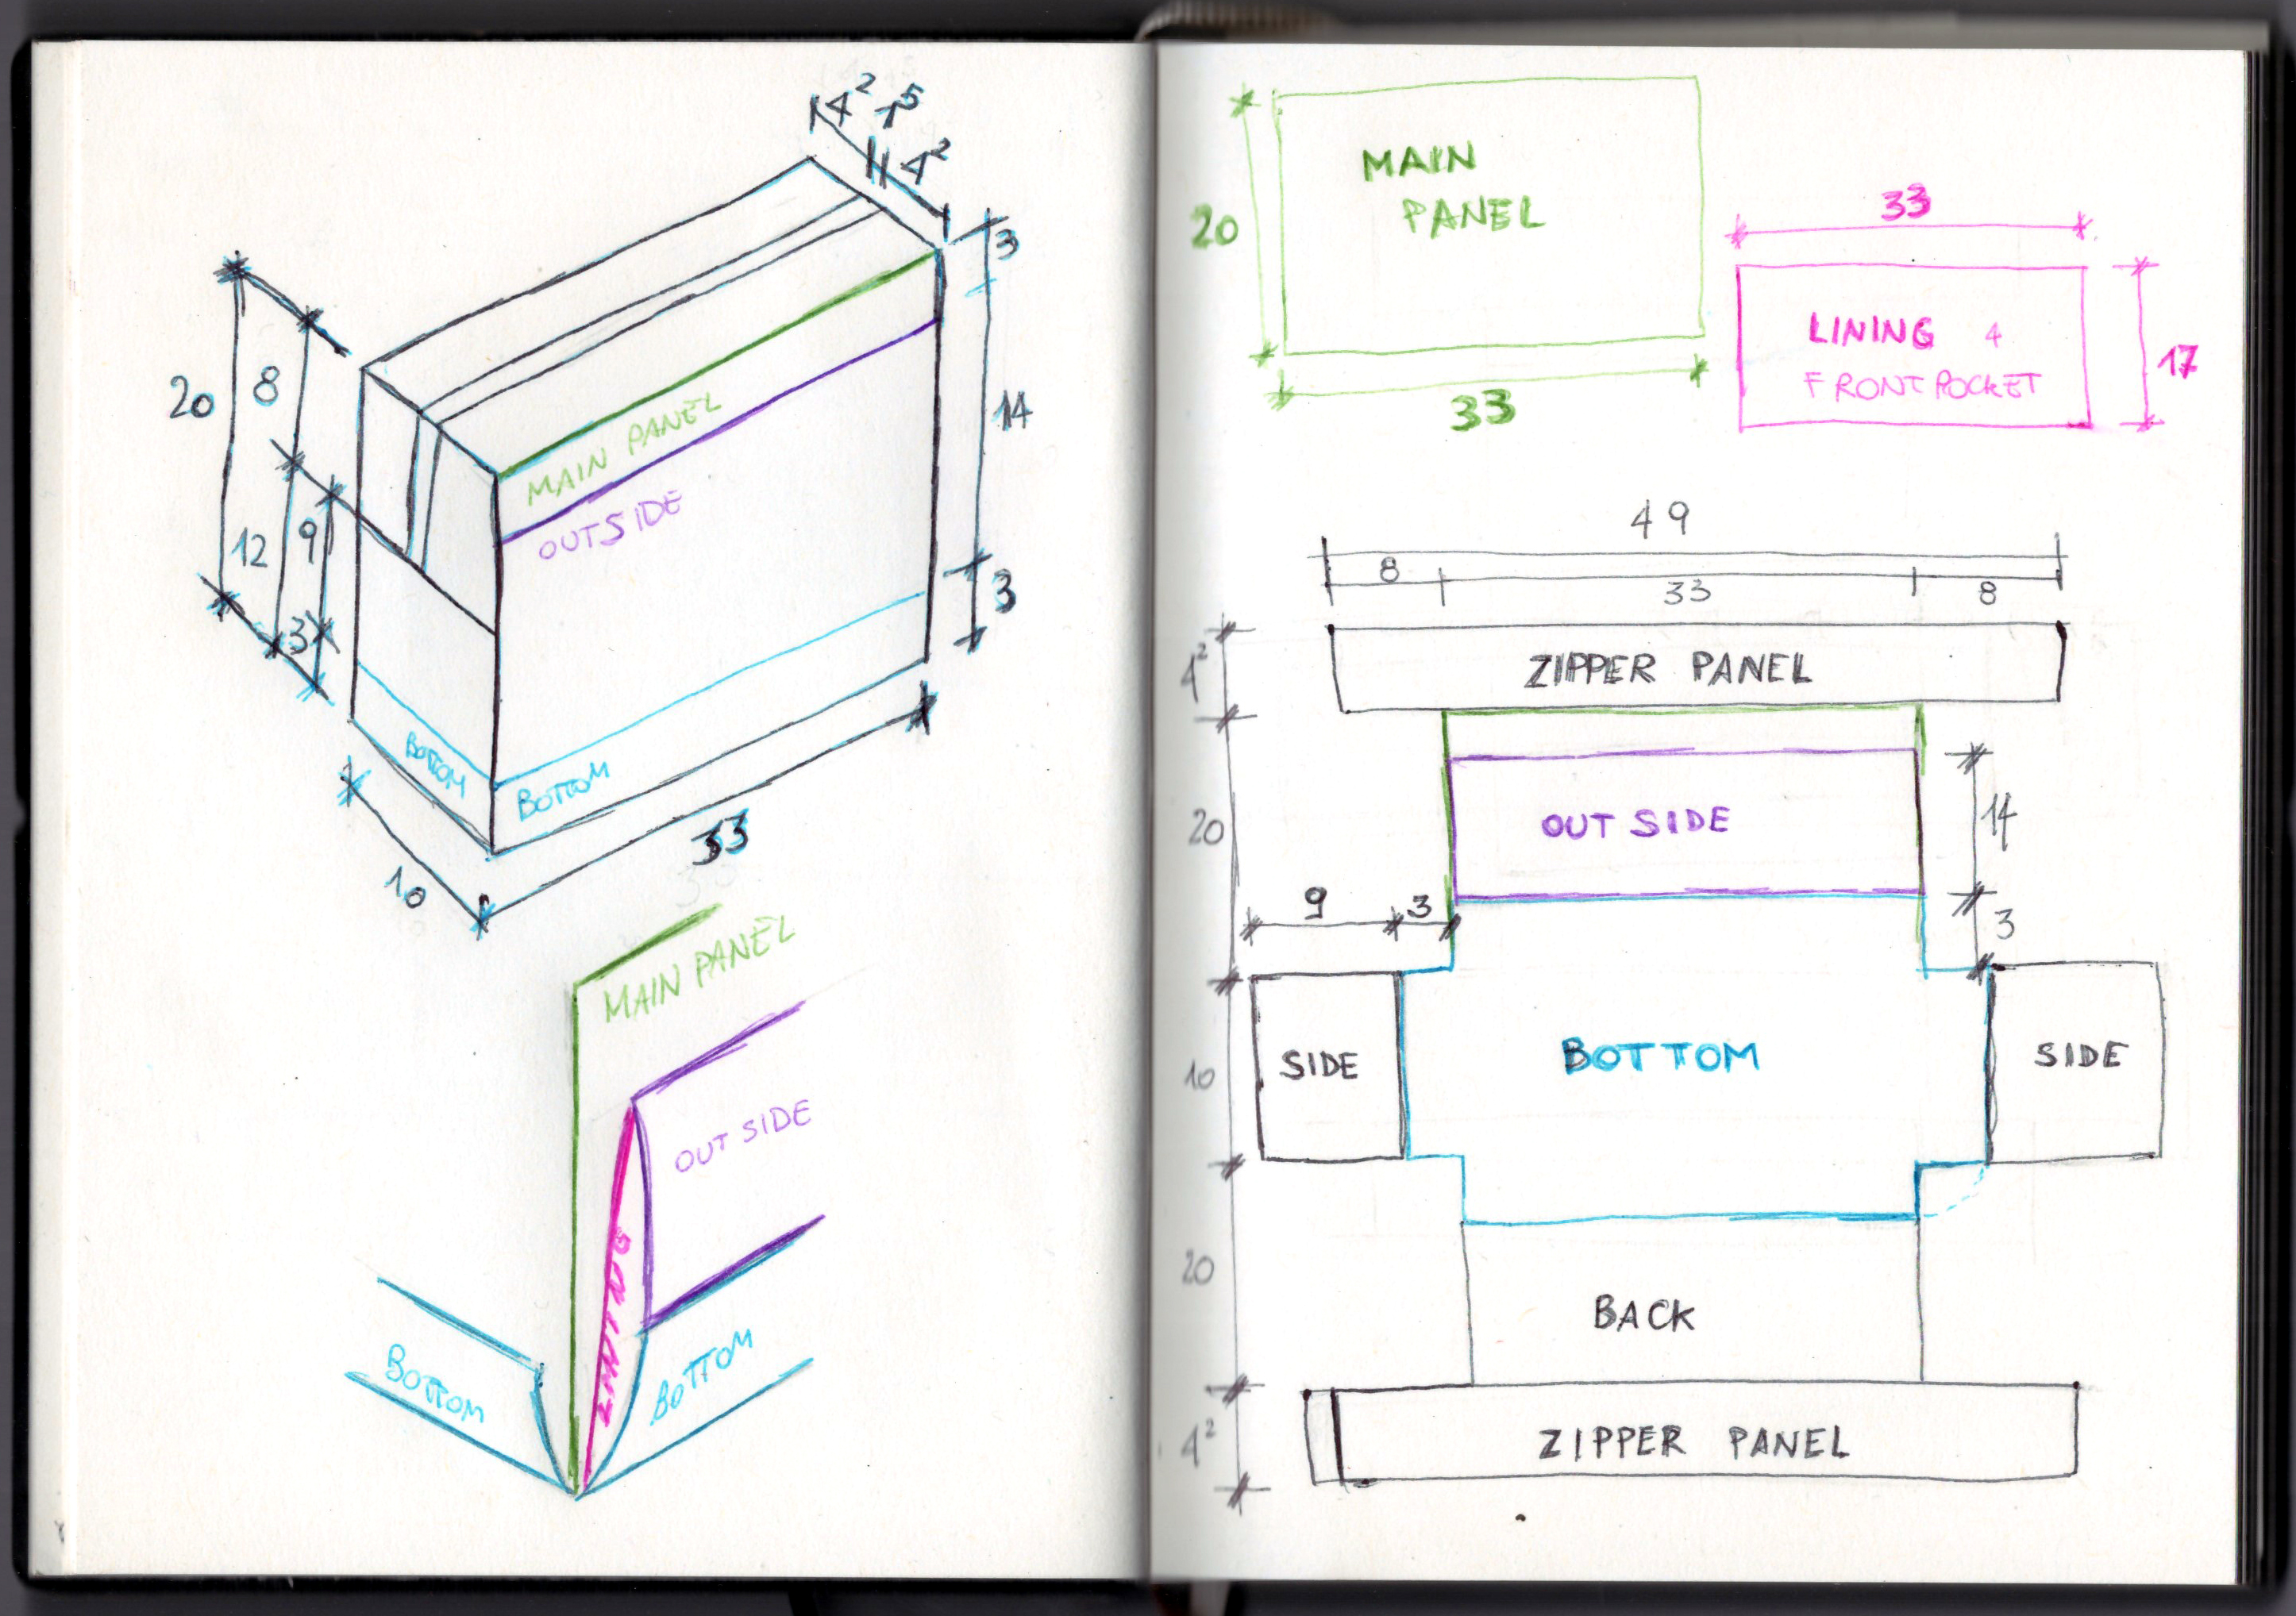 4²
1⁵
4²
3
20
8
14
MAIN PANEL
OUTSIDE
12
9
3
3
BOTTOM
BOTTOM
33
10
MAIN PANEL
OUT SIDE
LINING
BOTTOM
BOTTOM
MAIN
PANEL
20
33
33
LINING 4
FRONT POCKET
17
49
8
33
8
4²
ZIPPER PANEL
20
OUT SIDE
14
9
3
3
SIDE
BOTTOM
SIDE
10
20
BACK
4²
ZIPPER PANEL